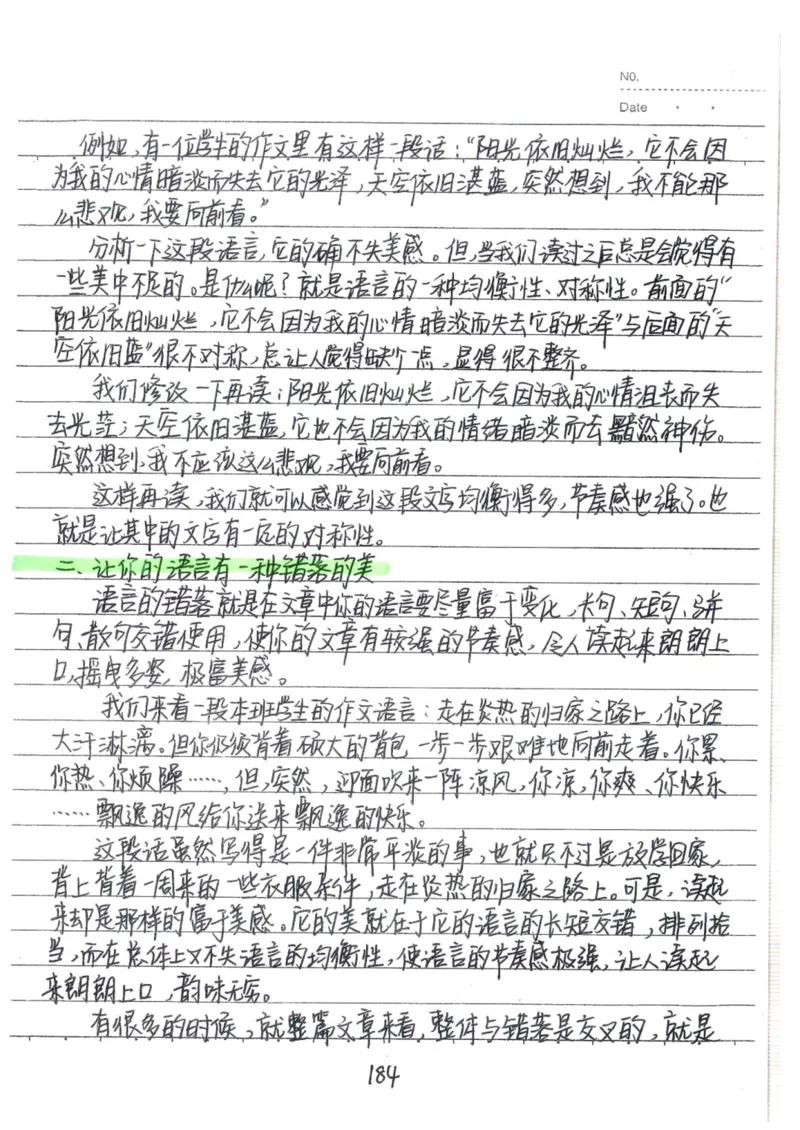 No.
Date
例如,有一位学生的作文里有这样一段话:“阳光依旧灿烂,它不会因
为我的心情暗淡而失去它的光泽,天空依旧湛蓝,突然想到,我不能那
么悲观,我要向前看。”
分析一下这段语言,它的确不失美感。但,当我们读过之后总是会觉得有
一些美中不足的。是什么呢?就是语言的一种均衡性、对称性。前面的“
阳光依旧灿烂,它不会因为我的心情暗淡而失去它的光泽”与后面的“天
空依旧蓝”很不对称,总让人觉得缺个点,显得很不整齐。
我们修改一下再读:阳光依旧灿烂,它不会因为我的心情沮丧而失
去光芒;天空依旧湛蓝,它也不会因为我的情绪暗淡而去黯然神伤。
突然想到,我不应该这么悲观,我要向前看。
这样再读,我们就可以感觉到这段文字均衡得多,节奏感也强了。也
就是让其中的文字有一定的对称性。
二、让你的语言有一种错落的美
语言的错落就是在文章中你的语言要尽量富于变化,长句、短句、骈
句、散句交错使用,使你的文章有较强的节奏感,令人读起来朗朗上
口,摇曳多姿,极富美感。
我们来看一段本班学生的作文语言:走在炎热的归家之路上,你已经
大汗淋漓。但你仍须背着硕大的背包一步一步艰难地向前走着。你累、
你热、你烦躁……,但,突然,迎面吹来一阵凉风,你凉,你爽、你快乐
……飘逸的风给你送来飘逸的快乐。
这段话虽然写得是一件非常平淡的事,也就只不过是放学回家,
背上背着一周来的一些衣服杂件,走在炎热的归家之路上。可是,读起
来却是那样的富于美感。它的美就在于它的语言的长短交错,排列恰
当,而在总体上又不失语言的均衡性,使语言的节奏感极强,让人读起
来朗朗上口,韵味无穷。
有很多的时候,就整篇文章来看,整体与错落是交叉的,就是
184